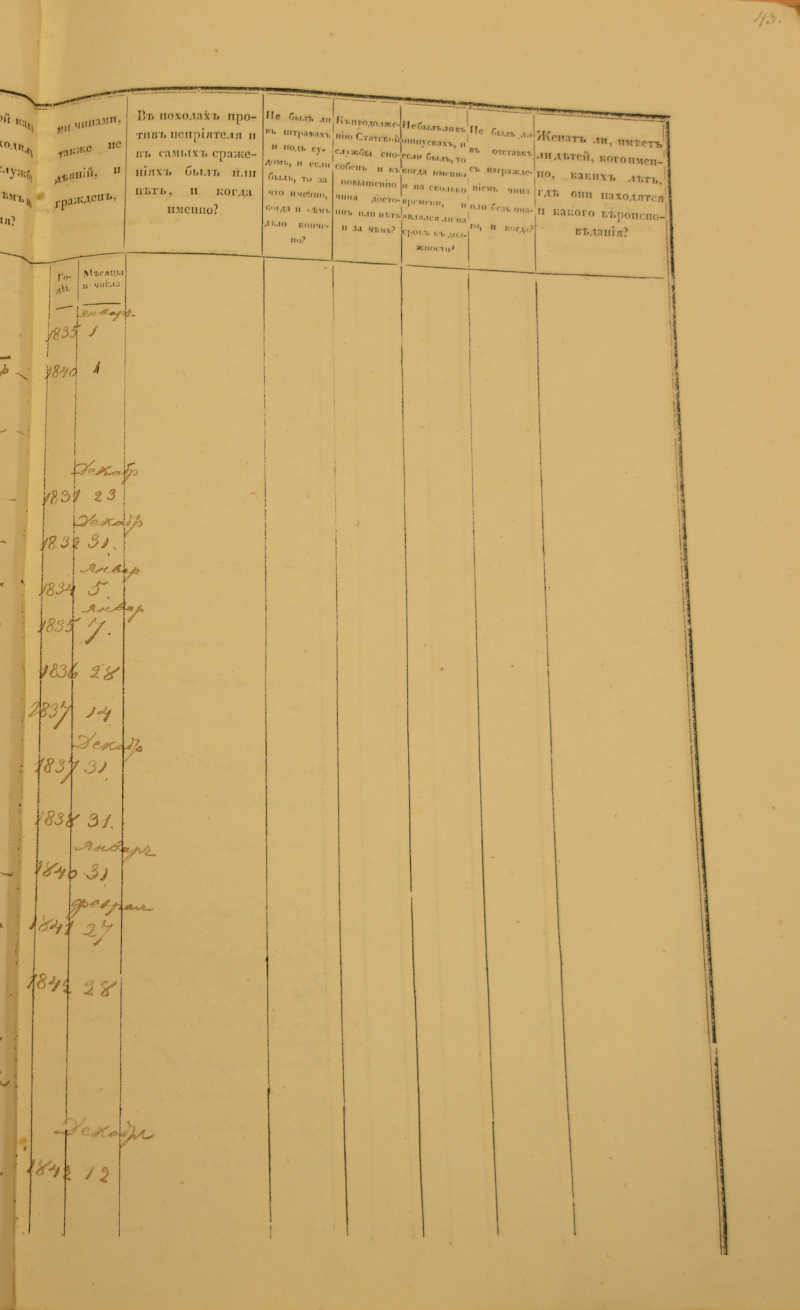 43.
ми чинами,
также не
дѣяній, и
гражденъ,
Въ походахъ про-
тивъ непріятеля и
въ самыхъ сраже-
ніяхъ былъ или
нѣтъ, и когда
именно?
Не былъ ли
въ штрафахъ
и подъ су-
домъ, и если
былъ, то за
что именно,
когда и чѣмъ
дѣло кончe-
но?
Къ продолже-
нію Статской
службы спо-
собенъ и къ
повышенію
чина досто-
инъ или нѣтъ
и за чѣмъ?
Не былъ ли въ
отпускахъ, и
если былъ, то
когда именно,
и на сколько
времени, и
являлся ли на
срокъ къ дол-
жности?
Не былъ ли
въ отставкѣ
съ награжде-
ніемъ чина
или безъ она-
го, и когда?
Женатъ ли, имѣетъ
ли дѣтей, кого имен-
но, какихъ лѣтъ,
гдѣ они находятся
и какого вѣроиспо-
вѣданія?
Го-
дъ.
Мѣсяцы
и числа
1835 1
1840 1
Декабр
1831 23
Декабр
1832 31.
Январ
1834 5.
Январ
1835 7.
1836 28
1837 14
Декабр
1837 31
1838 31.
Января
1840 31
Февраля
1841 27
1842 28
Декабря
1842 12